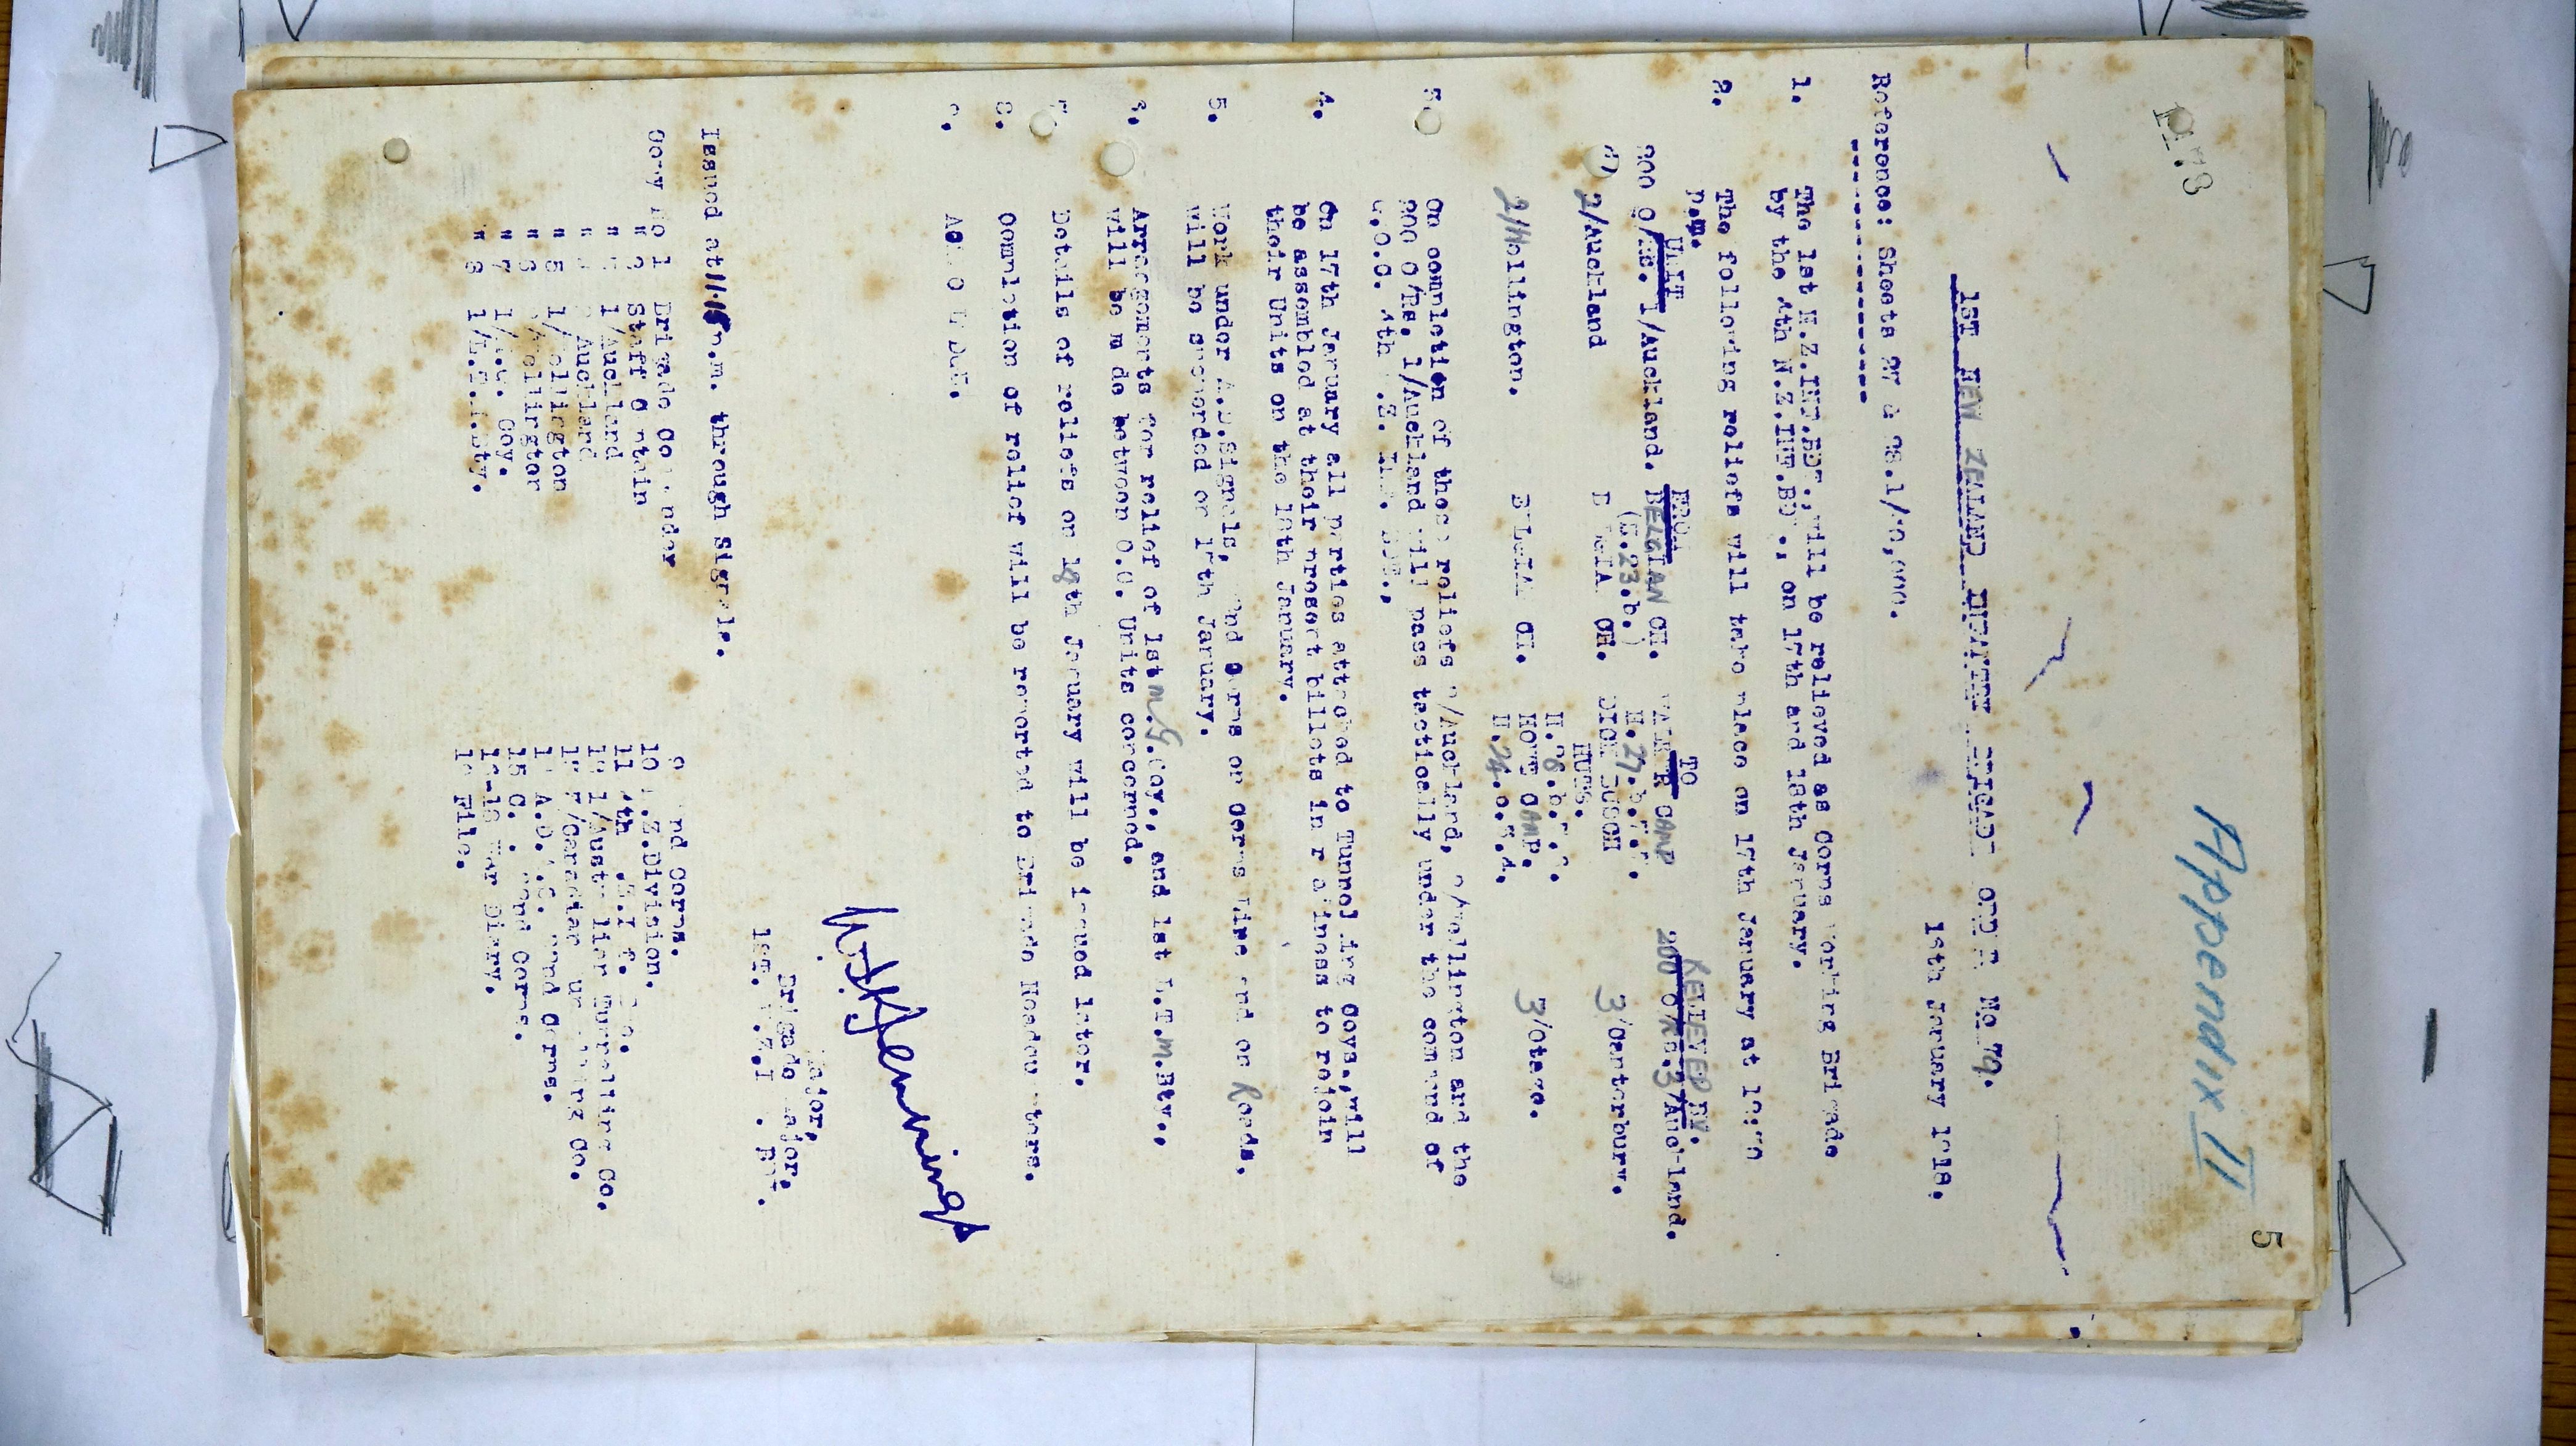 Appendix II
5
1ST NEW ZEALAND INFANTRY BRIGADE ORDER No 79.
January 1918.
Reference: Sheets 27 & 28.1/40,000.
1. The 1st N.Z.INF.BDE., will be relieved as Corps Working Brigade
by the 4th N.Z.INF.BDE., on 17th and 18th January.
2. The following reliefs will take place on 17th January at
p.m.
UNIT FROM TO RELIEVED BY.
200 O/Rs. 1/Auckland. BELGIAN CH. CAMP 200 O/Rs. 3/Auckland.
(G.23.b.) H.27.b.
2/Auckland BELGIAN CH. DICKEBUSCH 3/Canterbury.
HUTS.
H.28.b.
2/Wellington. BELGIAN CH. HOWE CAMP. 3/Otago.
H.24.
3. On completion of these reliefs 2/Auckland, 2/Wellington and the
200 O/Rs. 1/Auckland will pass tactically under the command of
G.O.C. 4th N.Z. Inf. Bde.,
4. On 17th January all parties attached to Tunnelling Coys., will
be assembled at their present billets in readiness to rejoin
their Units on the 18th January.
5. Work under A.D.Signals, 2nd Corps on Corps Line and on Roads,
will be suspended on 17th January.
6. Arrangements for relief of 1st M.G.Coy., and 1st L.T.M.Bty.,
will be made between O.C. Units concerned.
7. Details of reliefs on 18th January will be issued later.
8. Completion of relief will be reported to Brigade Headquarters.
9. ACKNOWLEDGE.
Major,
Brigade Major.
1ST. N.Z.INF. BDE.
Issued at p.m. through Signals.
Copy No 1 Brigade Commander
" 2 Staff Captain
" 3 1/Auckland
" 4 2/Auckland
" 5 1/Wellington
" 6 2/Wellington
" 7 1/M.G. Coy.
" 8 1/L.T.M.Bty.
9 2nd Corps.
10 N.Z.Division.
11 4th N.Z.I.Bde.
12 1/Australian Tunnelling Co.
13 3/Canadian Tunnelling Co.
14 A.D.S. 2nd Corps.
15 2nd Corps.
War Diary.
File.